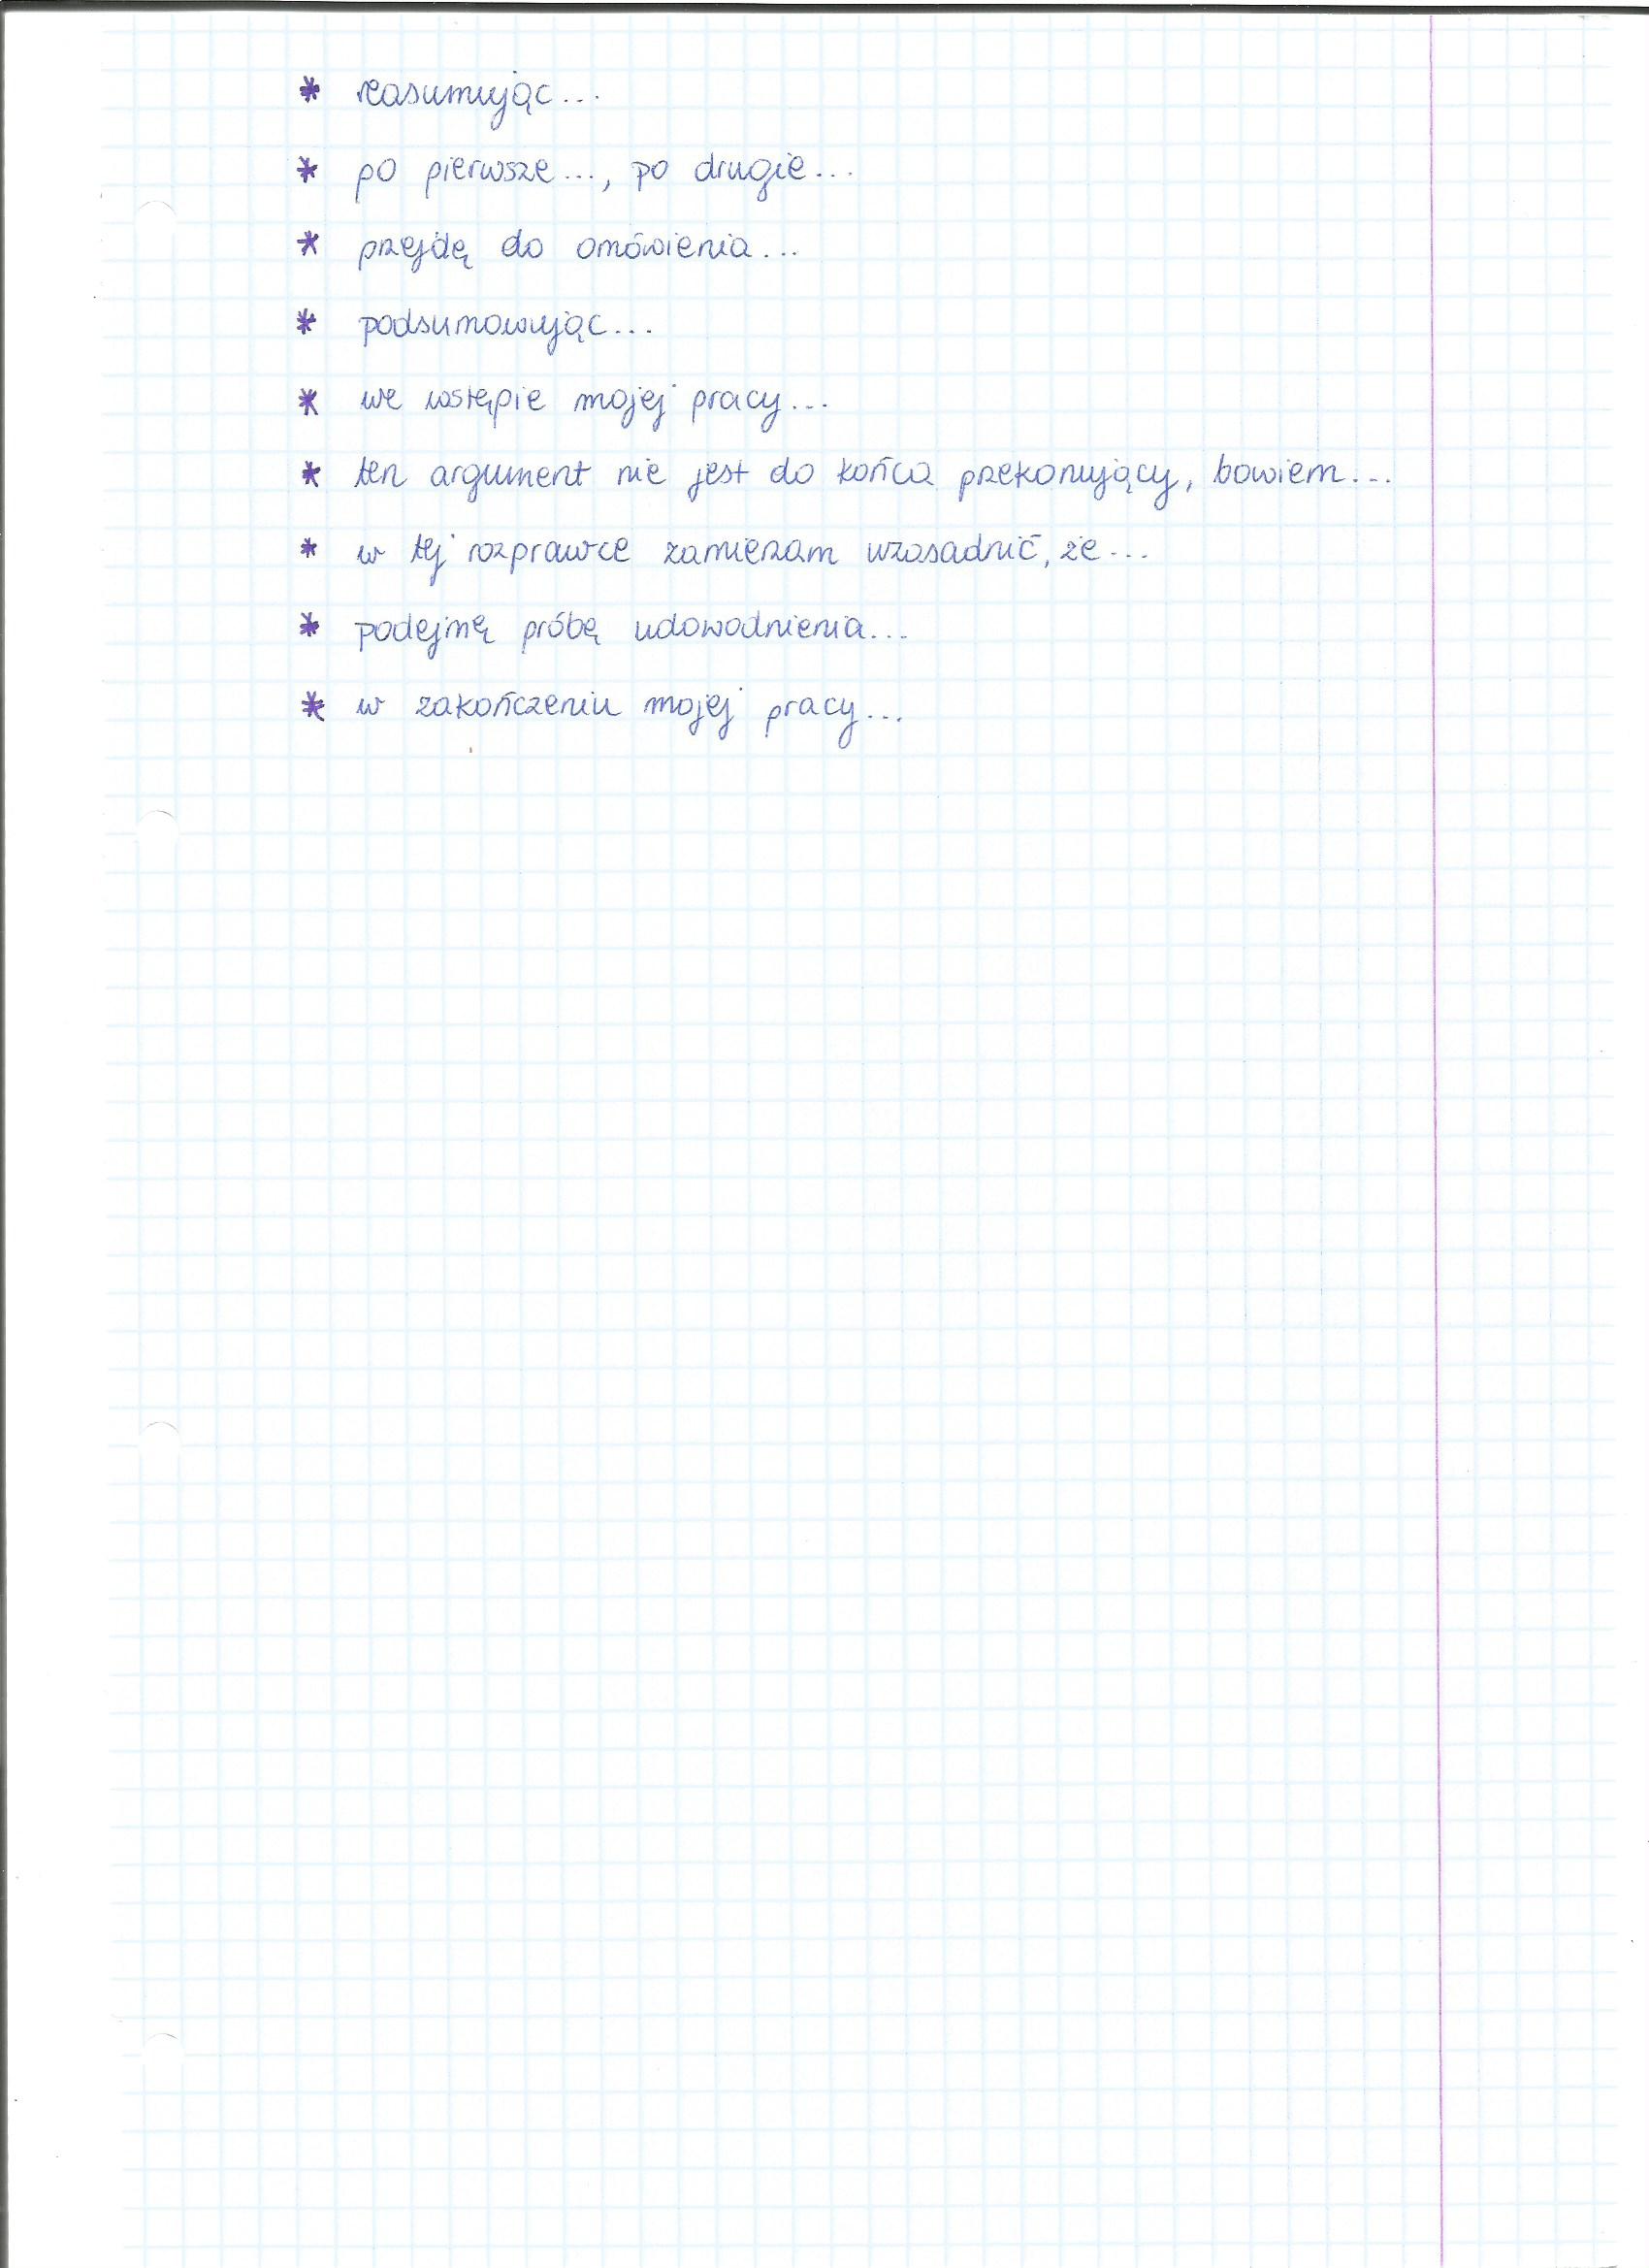 * reasumując...
* po pierwsze..., po drugie...
* przejdę do omówienia...
* podsumowując...
* we wstępie mojej pracy...
* ten argument nie jest do końca przekonujący, bowiem...
* w tej rozprawce zamierzam uzasadnić, że...
* podejmę próbę udowodnienia...
* w zakończeniu mojej pracy...